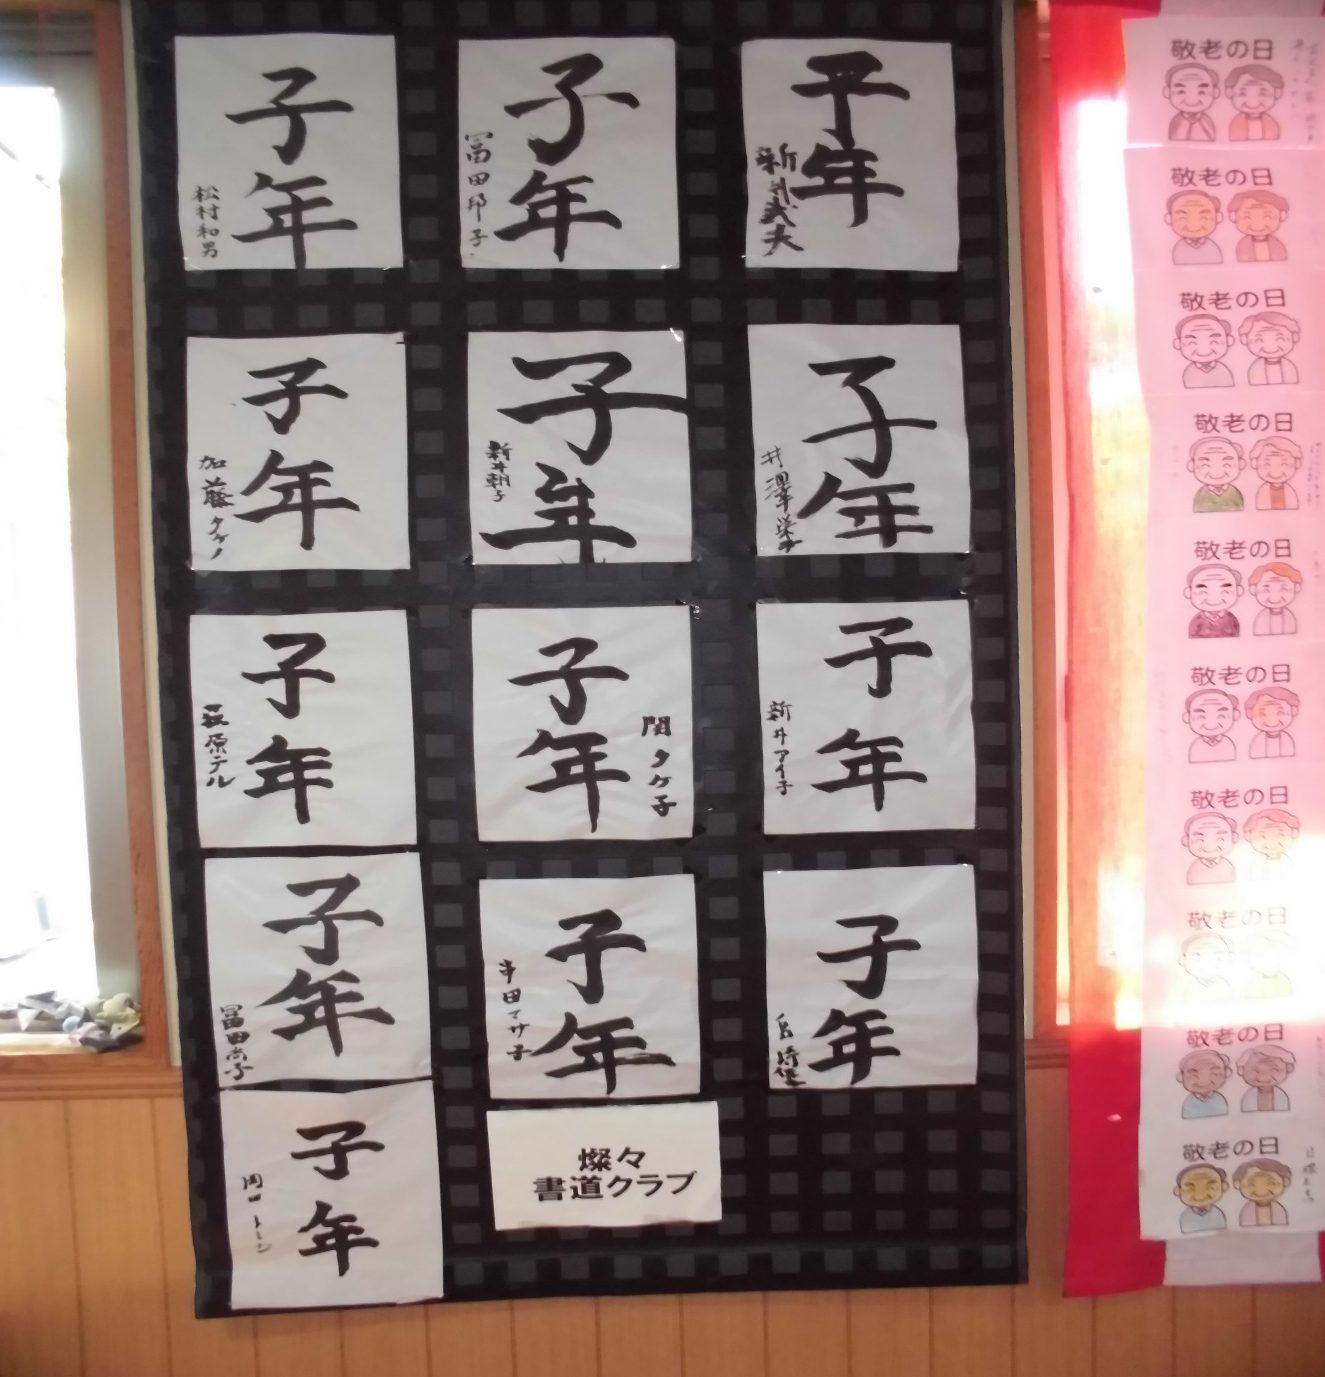 子年
松村和男
子年
冨田邦子
子年
新井武夫
子年
加藤タケノ
子年
新井朝子
子年
井澤栄子
子年
荻原テル
子年
関タケ子
子年
新井アイ子
子年
冨田尚子
子年
串田マサ子
子年
子年
岡田トシ
燦々
書道クラブ
敬老の日
敬老の日
敬老の日
敬老の日
敬老の日
敬老の日
敬老の日
敬老の日
敬老の日
敬老の日